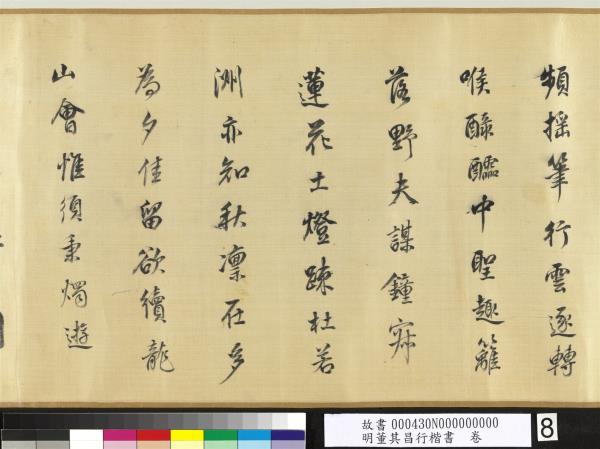 頻搖筆行雲逐轉
喉醁醽中聖趣籬
落野夫謀鐘寂
蓮花土燈疎杜若
洲亦知秋凜在多
為夕佳留欲續龍
山會惟須秉燭遊
故書 000430N000000000
明董其昌行楷書 卷
8